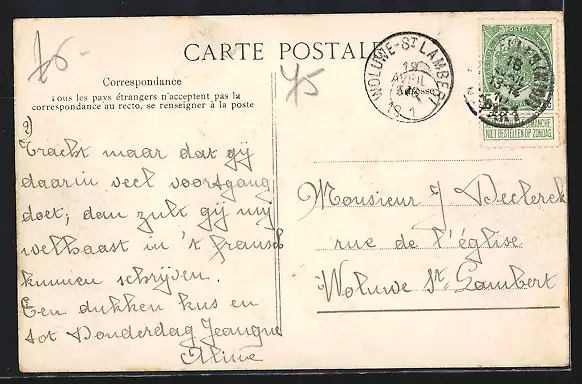 75-
CARTE POSTALE
Correspondance
Tous les pays étrangers n'acceptent pas la
correspondance au recto, se renseigner à la poste
45
Adresse
WOLUWE-ST LAMBERT
19
AVRIL
191
NIET BESTELLEN OP ZONDAG.
2)
Tracht maar dat gij
daarin veel voortgang
doet; dan zult gij mij
welhaast in 't fransch
kunnen schrijven.
Een dukken kus en
tot Donderdag Jeangne
Aline
Monsieur J Declerck
rue de l'église
Woluwe St. Lambert